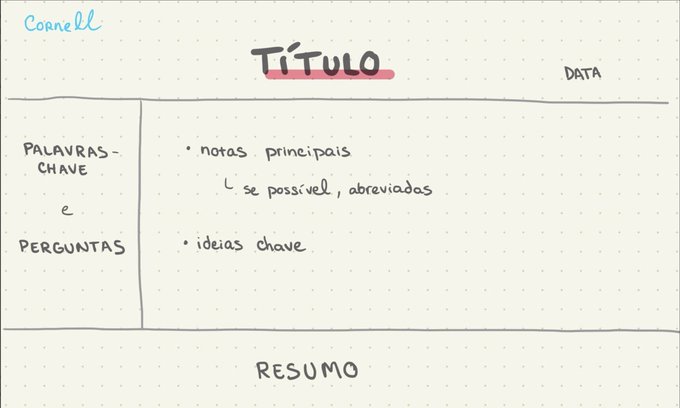 Cornell
TÍTULO
DATA
PALAVRAS-
CHAVE
e
PERGUNTAS
• notas principais
└ se possível, abreviadas
• ideias chave
RESUMO